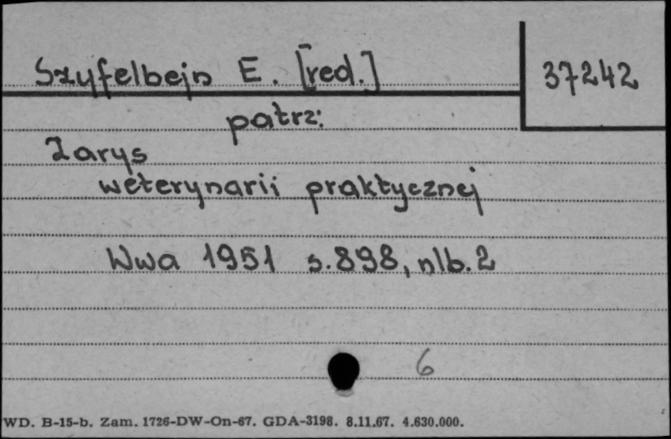 Szyfelbejn E. [red.]
37242
patrz:
Zarys
weterynarii praktycznej
Wwa 1951 s. 898, nlb. 2
6
WD. B-15-b. Zam. 1726-DW-On-67. GDA-3198. 8.11.67. 4.630.000.